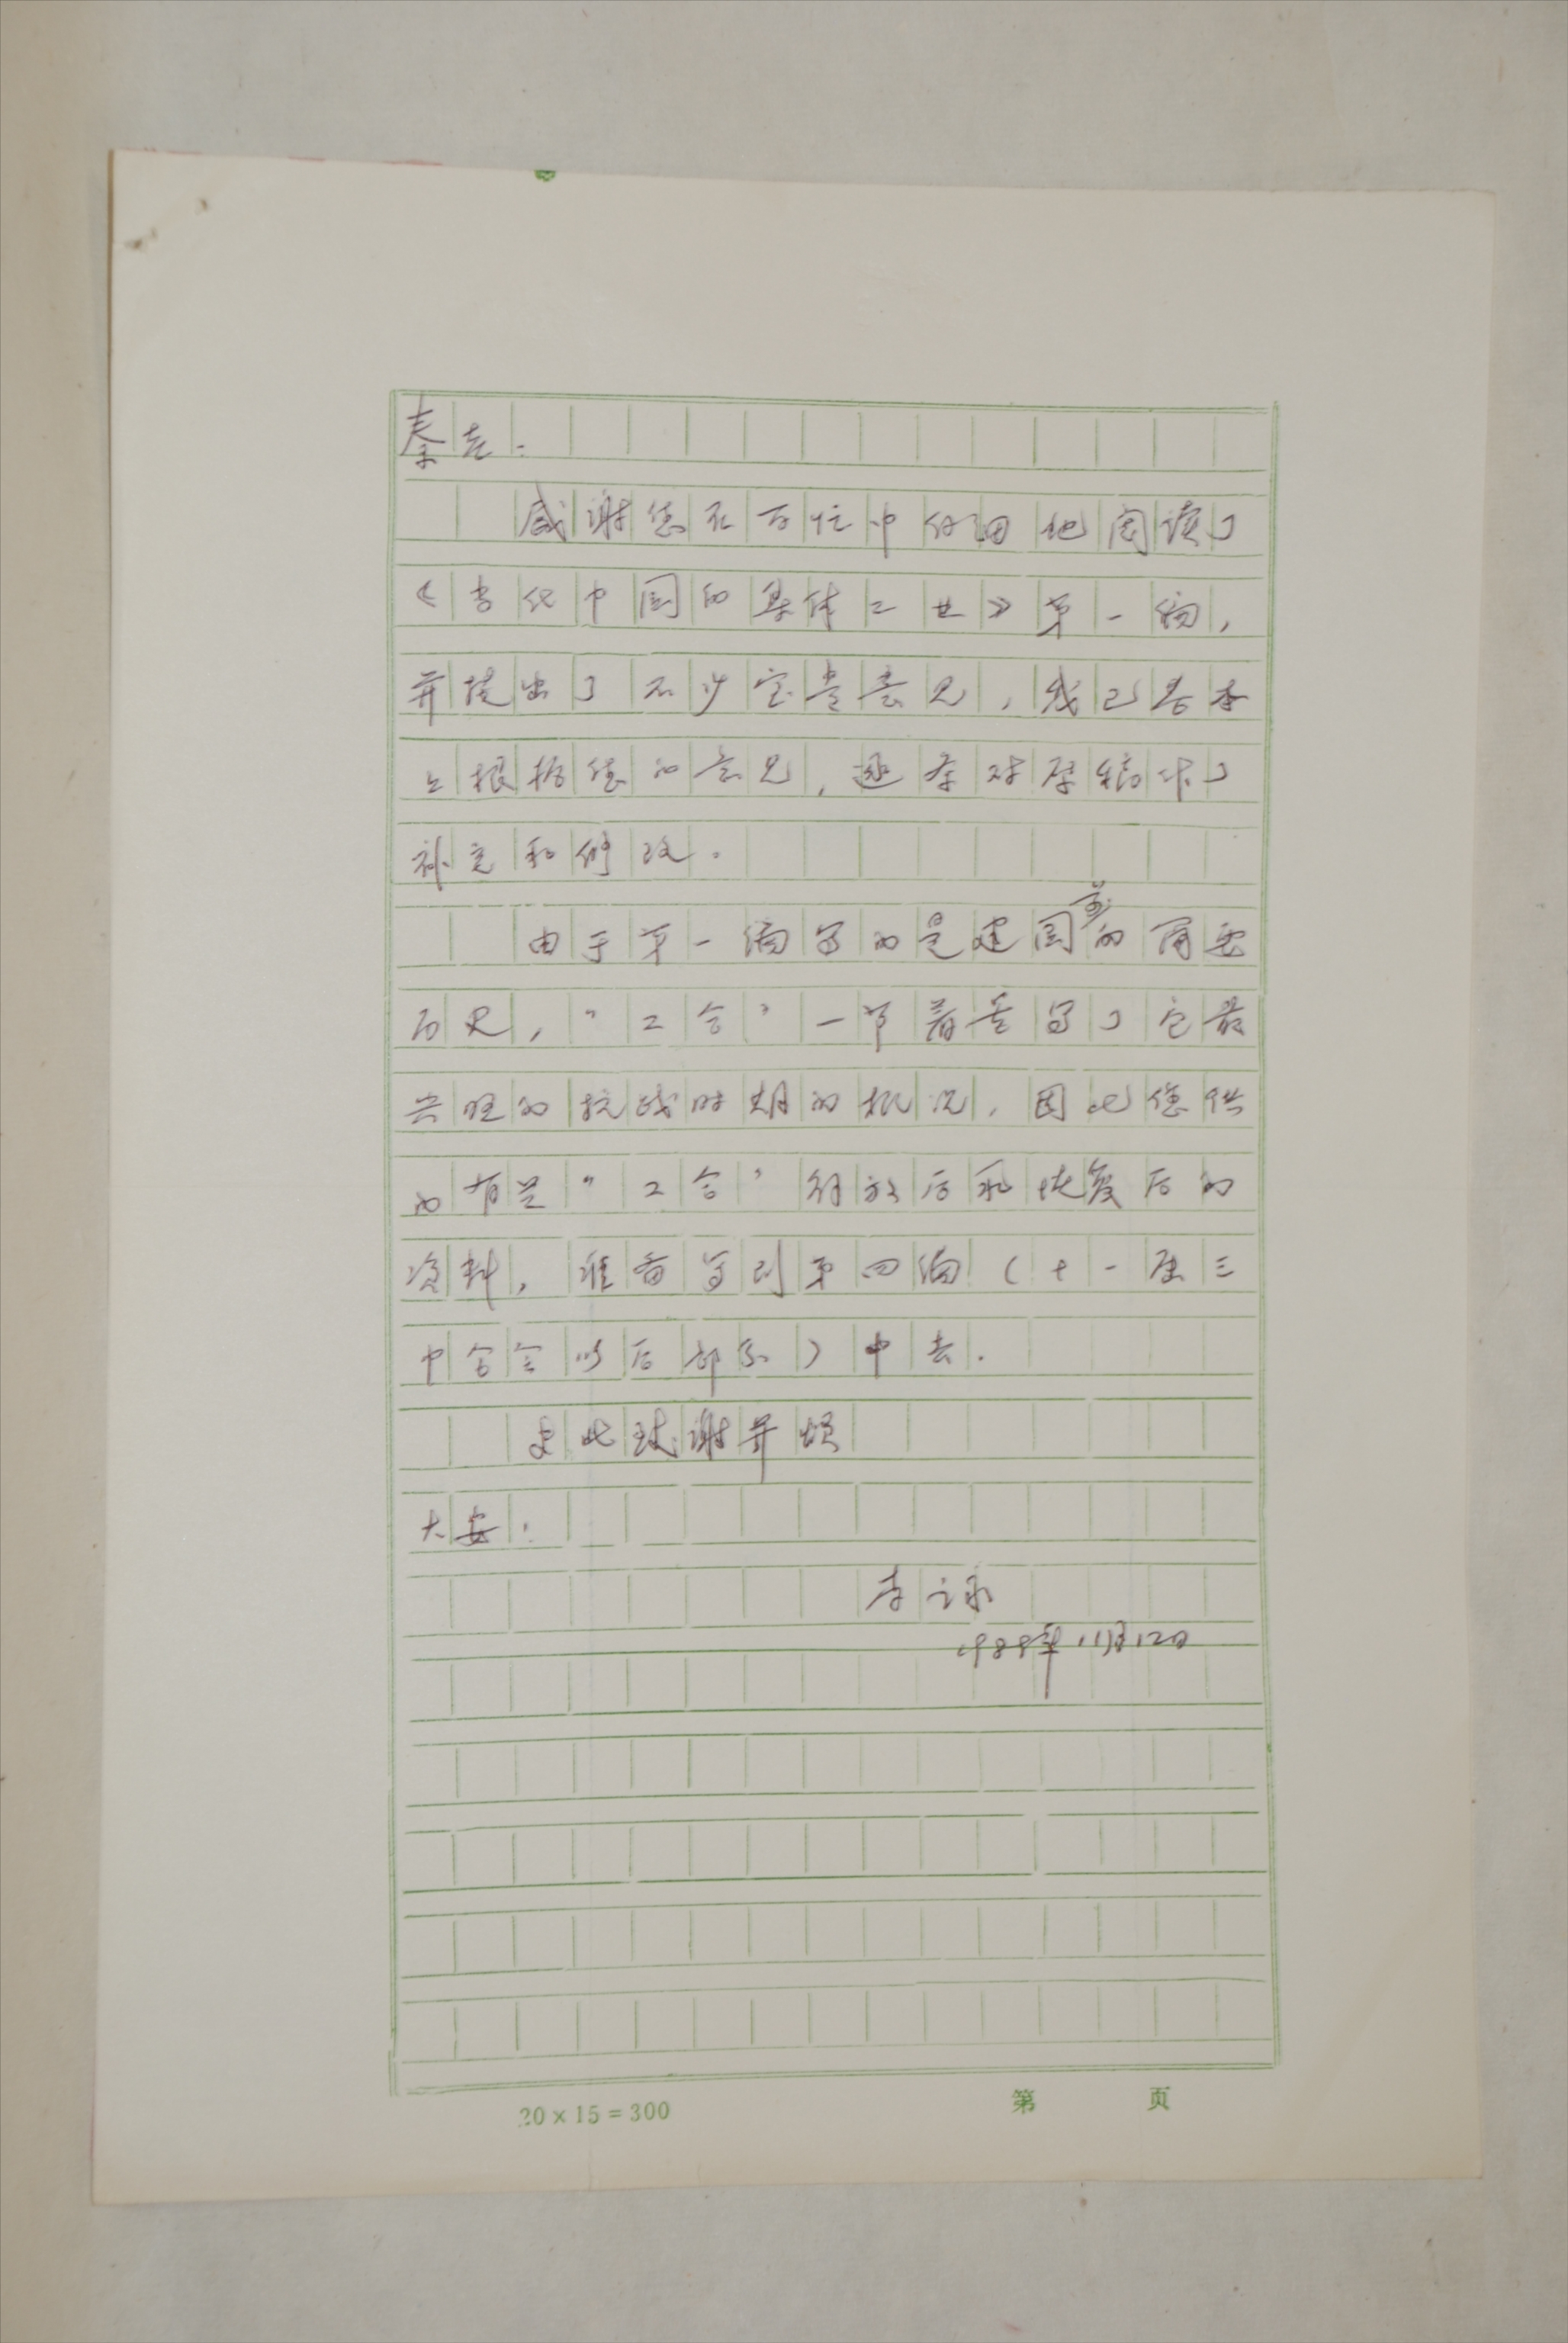 秦老：
感谢您在百忙中仔细地阅读了
《当代中国的集体工业》第一编，
并提出了不少宝贵意见，我已基本
上根据您的意见，逐条对原稿作了
补充和修改。
由于第一编写的是建国前的简要
历史，“工合”一节着重写了它最
兴旺的抗战时期的概况，因此您供
的有关“工合”解放后和恢复后的
资料，准备写到第四编（十一届三
中全会以后部分）中去．
专此致谢并颂
大安！
1989年11月12日
20×15=300
第 页